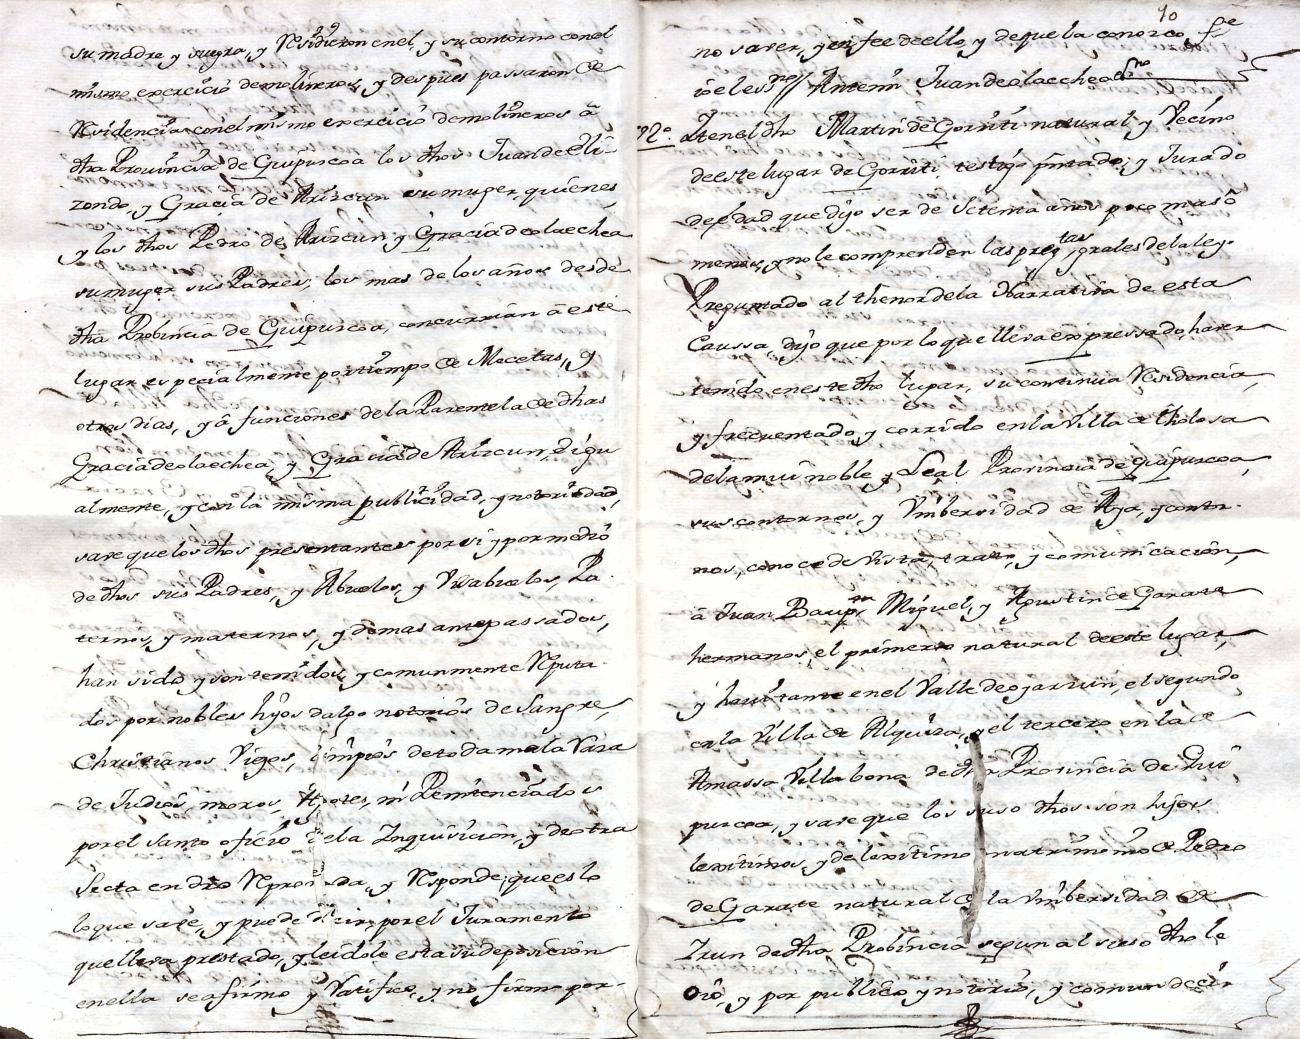 su madre y suegra, y Residieron en el, y su contorno con el
mismo exercicio de molineros, y despues passaron de
Residencia con el mismo exercicio de molineros â
dha Provincia de Guipuscoa los dhos Juan de Eli-
zondo, y Gracia de Arizcun su muger, quienes,
y los dhos Pedro de Arizcun y Gracia de olaechea
su muger sus Padres, los mas de los años desde
dha Probincia de Guipuscoa, concurrian â este
lugar especialmente por tiempo de Mecetas, y
otros dias, y â funciones de la Parentela de dhas
Gracia de olaechea, y Gracia de Arizcun, è igu
almente, y con la misma publicidad, y notoriedad,
save que los dhos presentantes por si y por medio
de dhos sus Padres, y Abuelos, y Visabuelos, Pa-
ternos, y maternos, y demas antepassados,
han sido, y son tenidos, y comunmente Reputa-
dos por nobles hijos dalgo notorios de Sangre,
Christianos Viejos, limpios de toda mala Raza
de Judios, moros, Agotes, ni Penitenciados
por el santo oficio de la Inquisicion, y de otra
Secta en dro Reprovada, y Responde, que es lo
lo que save, y puede decir, por el Juramento
que lleva prestado, y leidole esta su deposicion
en ella se afirmo y Ratifico, y no firmo por-
10
no saver, y en fee de ello, y de que la conozco, fe
io el essno // Antemi Juan de olaechea Essno
2º Iten el dho Martin de Gorriti natural y Vecino
de este lugar de Gorriti, testigo pntado, y Jurado
de edad que dijo ser de Setenta años poco mas ô
menos, y no le comprenden las pregtas grales de la ley
Preguntado al thenor de la Narrativa de esta
Caussa, dijo que por lo que lleva expressado, haver
tenido en este dho lugar, su continua Residencia,
y frecuentado, y corrido en la Villa de tholosa
de la mui noble y Leal Provincia de Guipuscoa,
sus contornos, y Vnibersidad de Aya, y contor-
nos, conoce de Vista, trato, y comunicacion,
â Juan Baupta, Miguel, y Agustin de Garate
hermanos, el primero natural de este lugar,
y havitante en el Valle de oyarzun, el segundo
en la Villa de Alquiza, y el tercero en la de
Amassa Villabona de dha Provincia de Gui
puzcoa, y save que los suso dhos son hijos
lexitimos, y de lexitimo matrimonio de Pedro
de Garate natural de la Vnibersidad de
Irun de dha Probincia segun al suso dho le
Oiô, y por publico y notorio, y comun decir